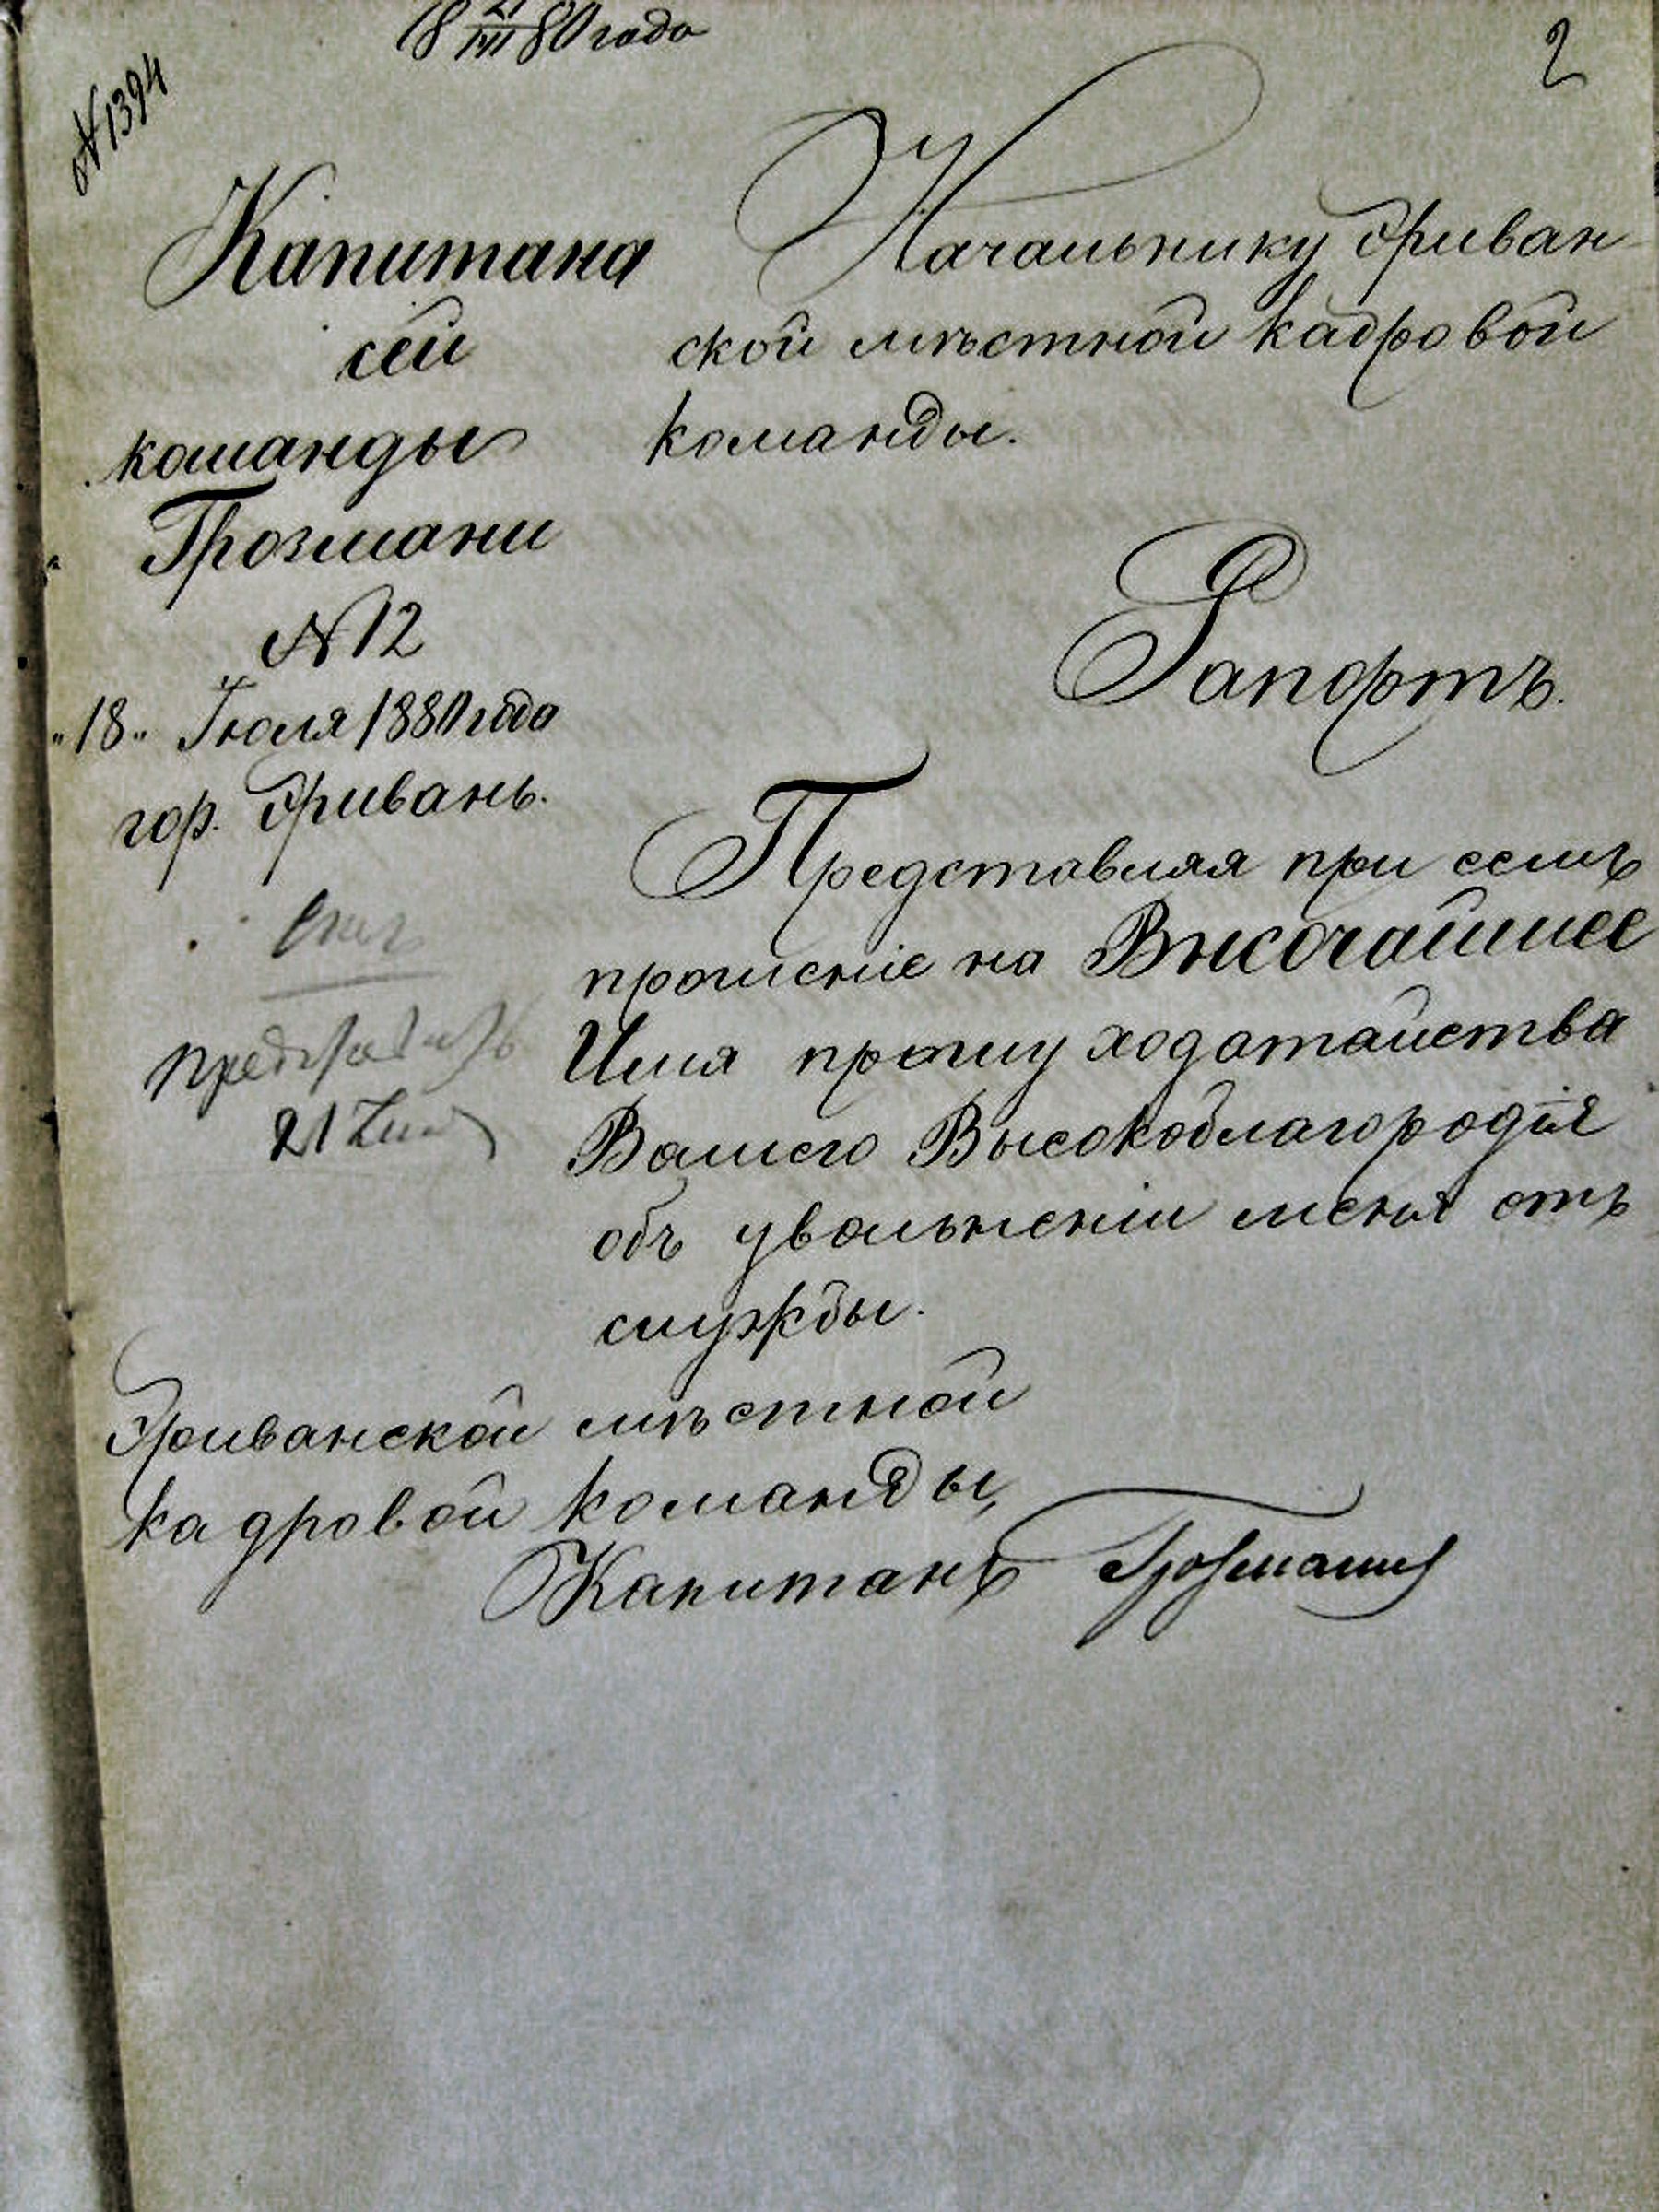 18 21/VII 80 года
2
№ 1394
Капитана
сей
команды
Грозмани
№ 12
"18" Июля 1880 года
гор. Эривань.
Начальнику Эриван
ской мѣстной кадровой
команды.
Рапортъ.
Представляя при семъ
прошеніе на Высочайшее
Имя прошу ходатайства
Вашего Высокоблагородія
объ увольненіи меня отъ
службы.
представить
21
Эриванской мѣстной
кадровой команды,
Капитанъ Грозмани